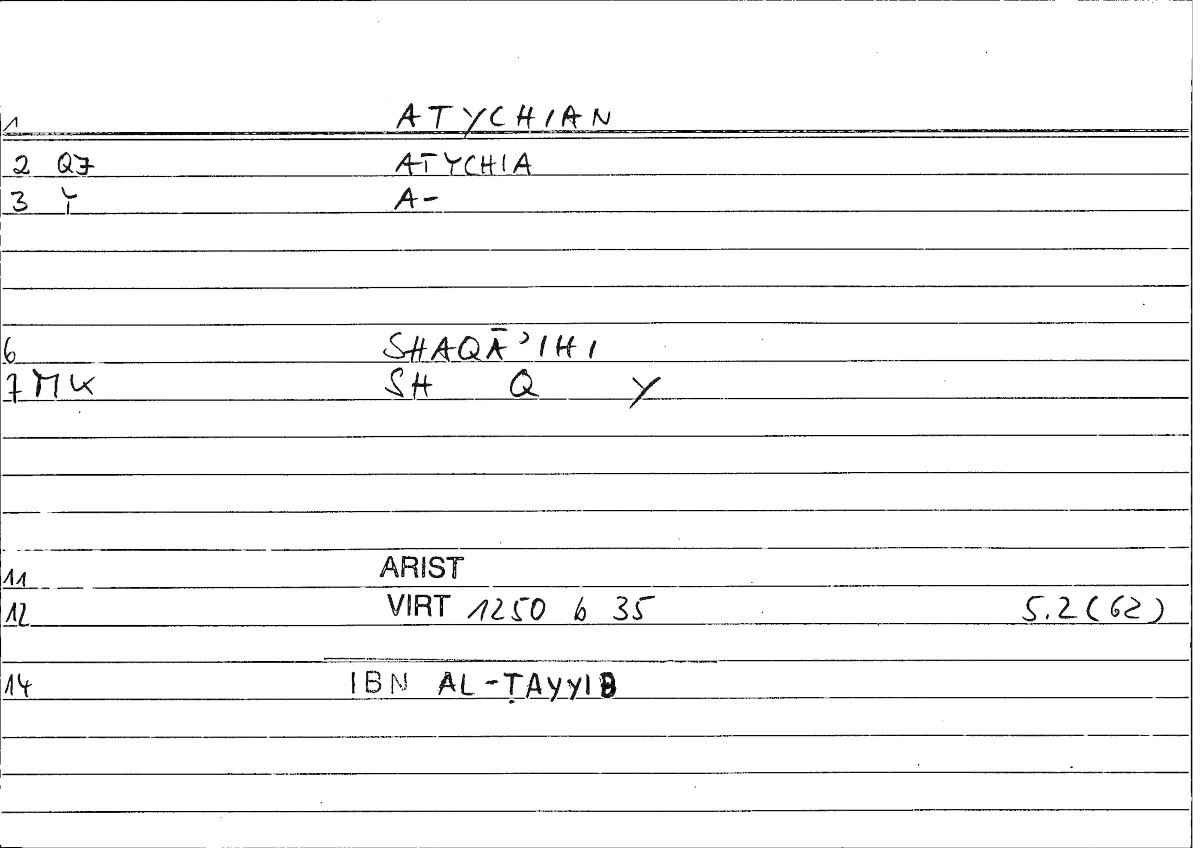 1 ATYCHIAN
2 Q7 ATYCHIA
3 Y A-
6 SHAQĀʾIHI
7 MK SH Q Y
11 ARIST
12 VIRT 1250 b 35 5.2(62)
14 IBN AL-ṬAYYIB